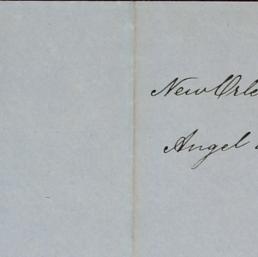 New Orle
Angel